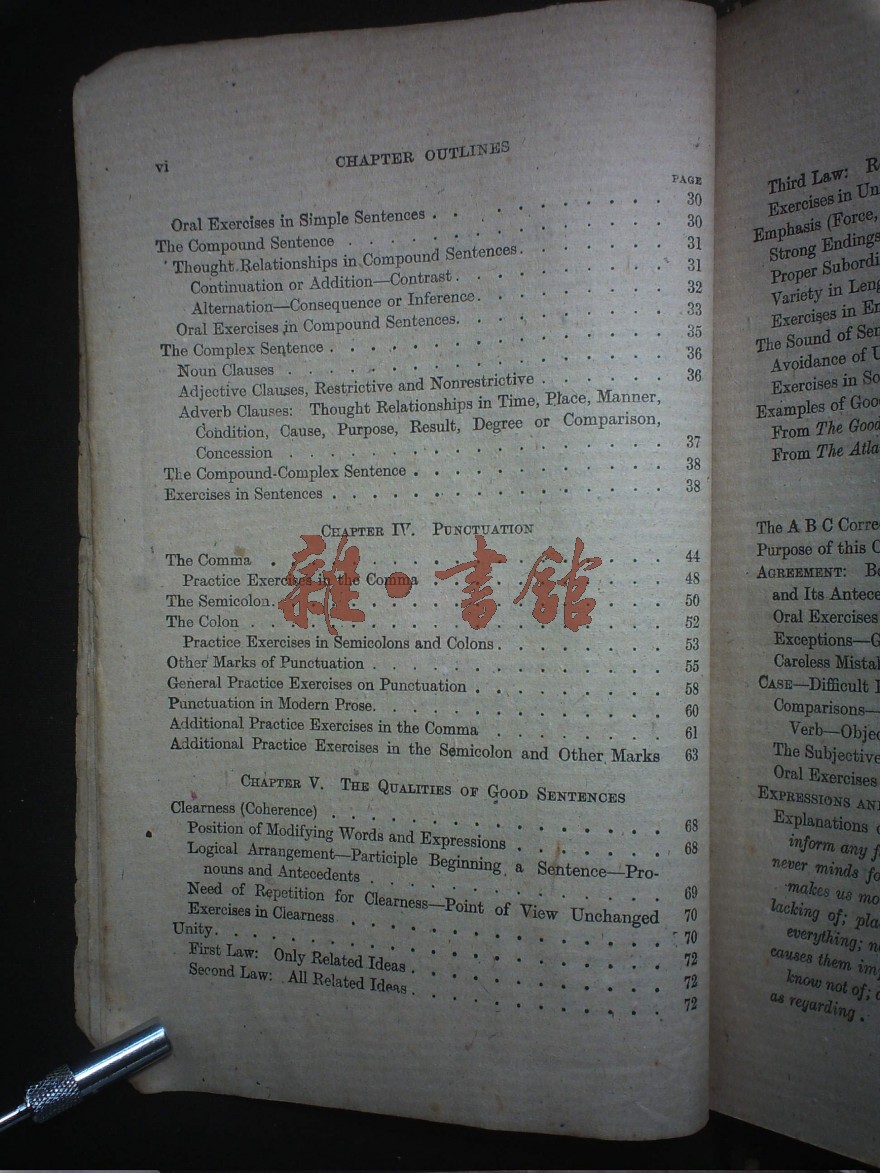 vi CHAPTER OUTLINES
PAGE
Oral Exercises in Simple Sentences . . . . . . . . . . 30
The Compound Sentence . . . . . . . . . . 30
Thought Relationships in Compound Sentences . . . . . . 31
Continuation or Addition—Contrast . . . . . . . . 31
Alternation—Consequence or Inference . . . . . . . . 32
Oral Exercises in Compound Sentences . . . . . . . . 33
The Complex Sentence . . . . . . . . . . 35
Noun Clauses . . . . . . . . . . 36
Adjective Clauses, Restrictive and Nonrestrictive . . . . . . 36
Adverb Clauses: Thought Relationships in Time, Place, Manner,
Condition, Cause, Purpose, Result, Degree or Comparison,
Concession . . . . . . . . . . 37
The Compound-Complex Sentence . . . . . . . . . . 38
Exercises in Sentences . . . . . . . . . . 38
CHAPTER IV. PUNCTUATION
The Comma . . . . . . . . . . 44
Practice Exercises in the Comma . . . . . . . . 48
The Semicolon . . . . . . . . . . 50
The Colon . . . . . . . . . . 52
Practice Exercises in Semicolons and Colons . . . . . . . 53
Other Marks of Punctuation . . . . . . . . . . 55
General Practice Exercises on Punctuation . . . . . . . . 58
Punctuation in Modern Prose . . . . . . . . . . 60
Additional Practice Exercises in the Comma . . . . . . . 61
Additional Practice Exercises in the Semicolon and Other Marks 63
CHAPTER V. THE QUALITIES OF GOOD SENTENCES
Clearness (Coherence) . . . . . . . . . . 68
Position of Modifying Words and Expressions . . . . . . 68
Logical Arrangement—Participle Beginning a Sentence—Pro-
nouns and Antecedents . . . . . . . . . . 69
Need of Repetition for Clearness—Point of View Unchanged 70
Exercises in Clearness . . . . . . . . . . 70
Unity . . . . . . . . . . 72
First Law: Only Related Ideas . . . . . . . . . . 72
Second Law: All Related Ideas . . . . . . . . . . 72
雜·書館
Third Law: R
Exercises in Un
Emphasis (Force,
Strong Endings
Proper Subordi
Variety in Leng
Exercises in Em
The Sound of Sen
Avoidance of U
Exercises in So
Examples of Good
From The Good
From The Atla
The A B C Corre
Purpose of this C
AGREEMENT: Be
and Its Antece
Oral Exercises
Exceptions—G
Careless Mistak
CASE—Difficult
Comparisons—
Verb—Objec
The Subjective
Oral Exercises
EXPRESSIONS AN
Explanations o
inform any f
never minds fo
makes us mo
lacking of; pla
everything; n
causes them im
know not of;
as regarding .